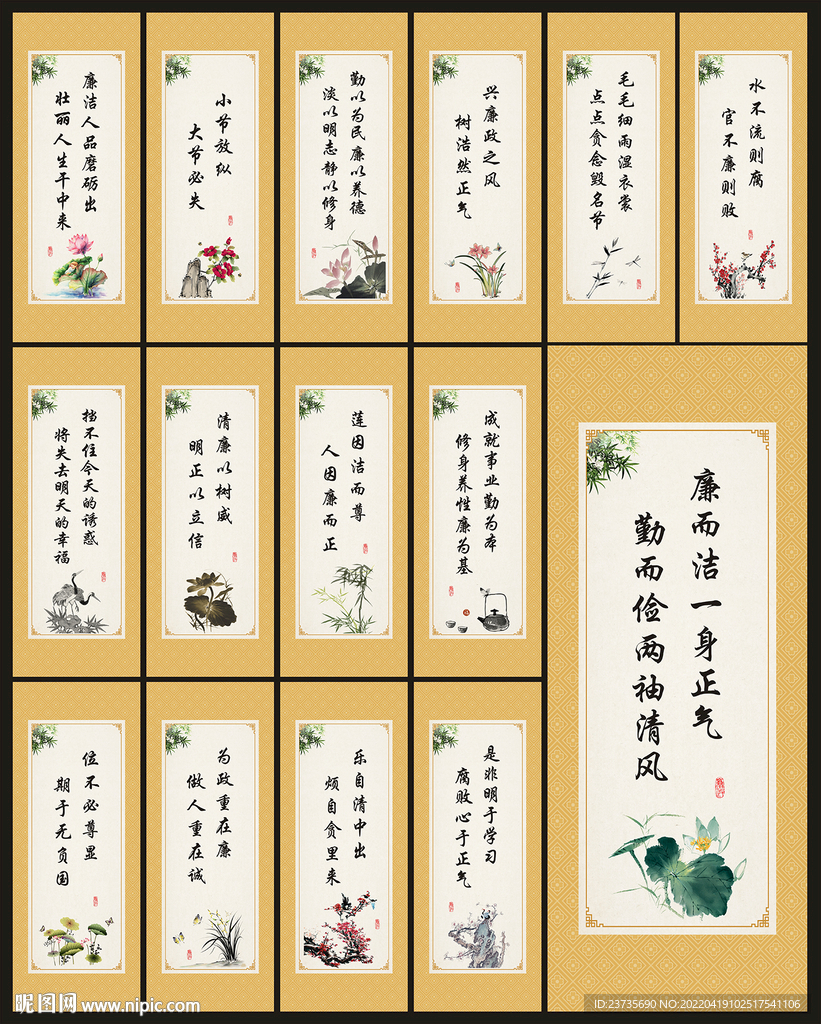 廉洁人品磨砺出
壮丽人生干中来
小节放纵
大节必失
勤以为民廉以养德
淡以明志静以修身
兴廉政之风
树浩然正气
毛毛细雨湿衣裳
点点贪念毁名节
水不流则腐
官不廉则败
挡不住今天的诱惑
将失去明天的幸福
清廉以树威
明正以立信
莲因洁而尊
人因廉而正
成就事业勤为本
修身养性廉为基
廉而洁一身正气
勤而俭两袖清风
位不必尊显
期于无负国
为政重在廉
做人重在诚
乐自清中出
烦自贪里来
是非明于学习
腐败心于正气
昵图网 www.nipic.com
ID:23735690 NO:20220419102517541106